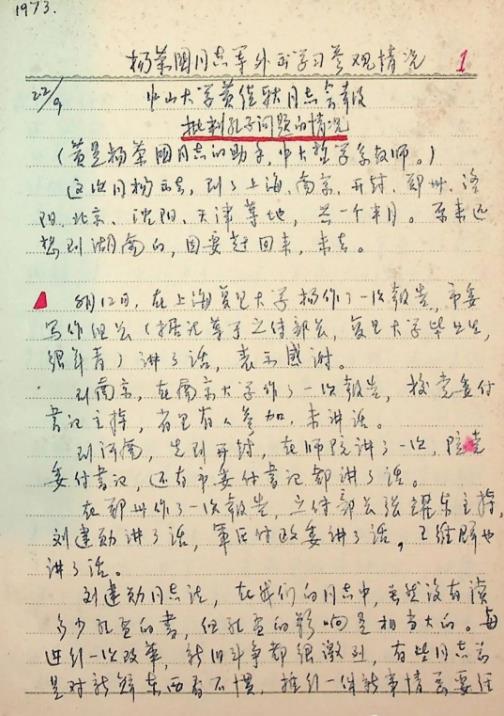 1973.
杨荣国同志等外出学习参观情况 1
22/9 中山大学黄经耿同志会报
批判孔子问题的情况
(黄是杨荣国同志的助手,中大哲学系教师。)
这次同杨一起去,到了上海、南京、开封、郑州、洛
阳、北京、沈阳、天津等地,共一个半月。原来还
想到湖南的,因要赶回来,未去。
8月12日,在上海复旦大学杨作了一次报告,市委
写作组长(据说等于宣传部长,复旦大学毕业生,
很年青)讲了话,表示感谢。
到南京,在南京大学作了一次报告,校党委付
书记主持,省里有人参加,未讲话。
到河南,先到开封,在师院讲了一次,院党
委付书记,还有市委付书记都讲了话。
在郑州作了一次报告,宣传部长张耀东主持,
刘建勋讲了话,军区付政委讲了话,王维群也
讲了话。
刘建勋同志说,在我们的同志中,虽然没有读
多少孔孟的书,但孔孟的影响是相当大的。每
进行一次改革,新旧斗争都很激烈,有些同志总
是对新鲜东西看不惯,推行一件新事情总要经